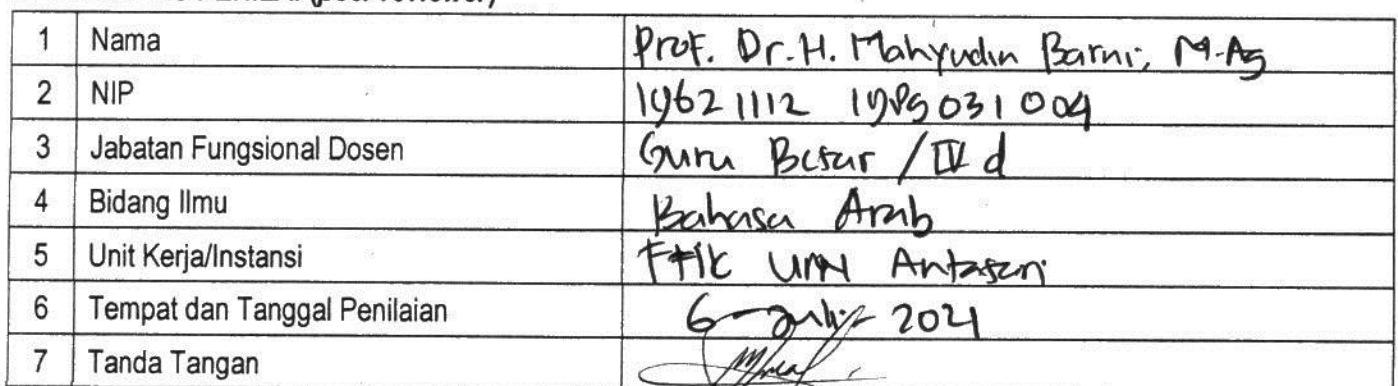 (peer reviewer)
1 Nama Prof. Dr. H. Mahyudin Barni, M.Ag
2 NIP 19621112 198903 1 004
3 Jabatan Fungsional Dosen Guru Besar / IV d
4 Bidang Ilmu Bahasa Arab
5 Unit Kerja/Instansi FTIK UIN Antasari
6 Tempat dan Tanggal Penilaian 6 - Juli - 2021
7 Tanda Tangan